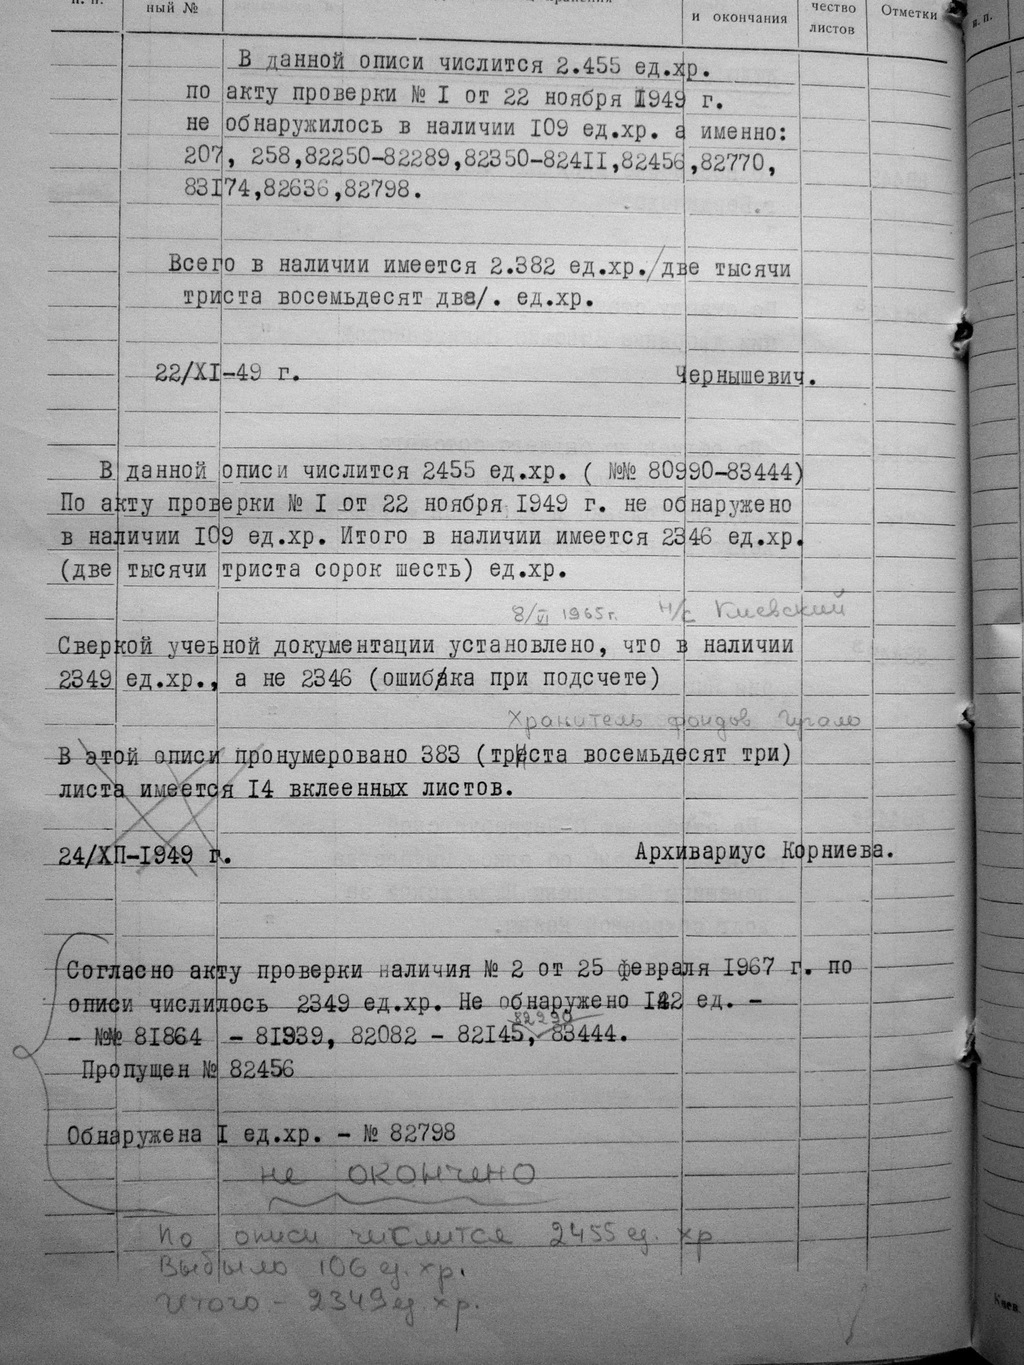 ный №
и окончания
чество
листов
Отметки
п. п.
В данной описи числится 2.455 ед.хр.
по акту проверки № I от 22 ноября I949 г.
не обнаружилось в наличии I09 ед.хр. а именно:
207, 258,82250-82289,82350-824II,82456,82770,
83I74,82636,82798.
Всего в наличии имеется 2.382 ед.хр./две тысячи
триста восемьдесят два/. ед.хр.
22/XI-49 г. Чернышевич.
В данной описи числится 2455 ед.хр. ( №№ 80990-83444)
По акту проверки № I от 22 ноября I949 г. не обнаружено
в наличии I09 ед.хр. Итого в наличии имеется 2346 ед.хр.
(две тысячи триста сорок шесть) ед.хр.
8/VI 1965г. н/с Киевский
Сверкой учеьной документации установлено, что в наличии
2349 ед.хр., а не 2346 (ошибка при подсчете)
Хранитель фондов Чугало
В этой описи пронумеровано 383 (триста восемьдесят три)
листа имеется I4 вклеенных листов.
24/ХП-I949 г. Архивариус Корниева.
Согласно акту проверки наличия № 2 от 25 февраля I967 г. по
описи числилось 2349 ед.хр. Не обнаружено I42 ед. -
82290
- №№ 81864 - 81939, 82082 - 82I45, 83444.
Пропущен № 82456
Обнаружена I ед.хр. - № 82798
не окончено
По описи числится 2455 ед. хр
Выбыло 106 ед. хр.
Итого - 2349 ед хр.
Киев.